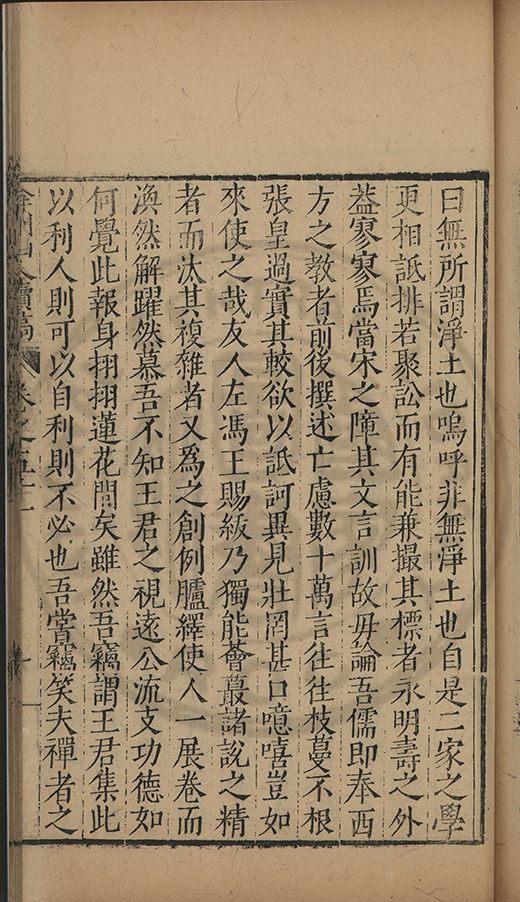 曰無所謂淨土也嗚呼非無淨土也自是二家之學
更相詆排若聚訟而有能兼撮其標者永明壽之外
葢寥寥焉當宋之障其文言訓故毋論吾儒即奉西
方之教者前後撰述亡慮數十萬言往往枝蔓不根
張皇過實其較欲以詆訶異見壯罔甚口噫嘻豈如
來使之哉友人左馮王賜紱乃獨能薈蕞諸說之精
者而汰其複雜者又為之創例臚繹使人一展卷而
渙然解躍然慕吾不知王君之視遠公流支功德如
何覺此報身栩栩蓮花間矣雖然吾竊謂王君集此
以利人則可以自利則不必也吾嘗竊笑夫禪者之
弇州山人續稿 卷之五十二